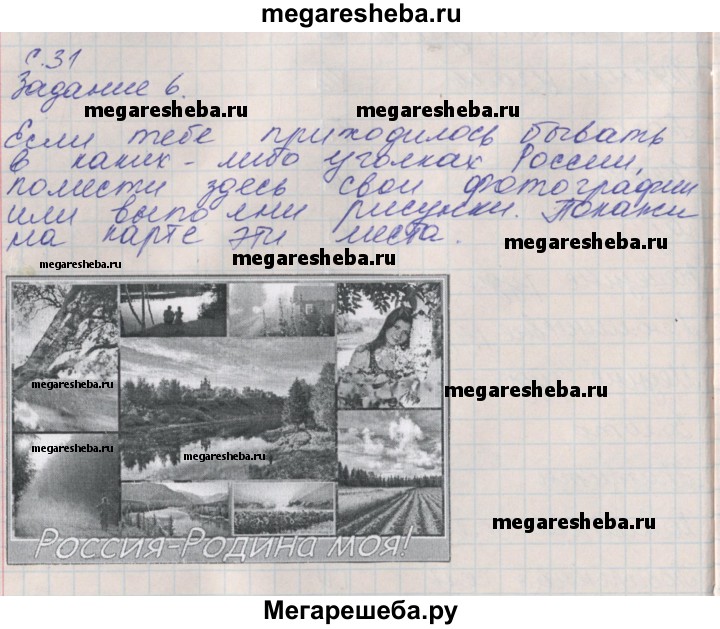 megaresheba.ru
с.31
Задание 6.
megaresheba.ru megaresheba.ru
Если тебе приходилось бывать
в каких-либо уголках России,
помести здесь свои фотографии
или выполни рисунки. Покажи
на карте эти места.
megaresheba.ru
megaresheba.ru
megaresheba.ru
megaresheba.ru
megaresheba.ru
megaresheba.ru
megaresheba.ru
Россия-Родина моя!
Мегарешеба.ру